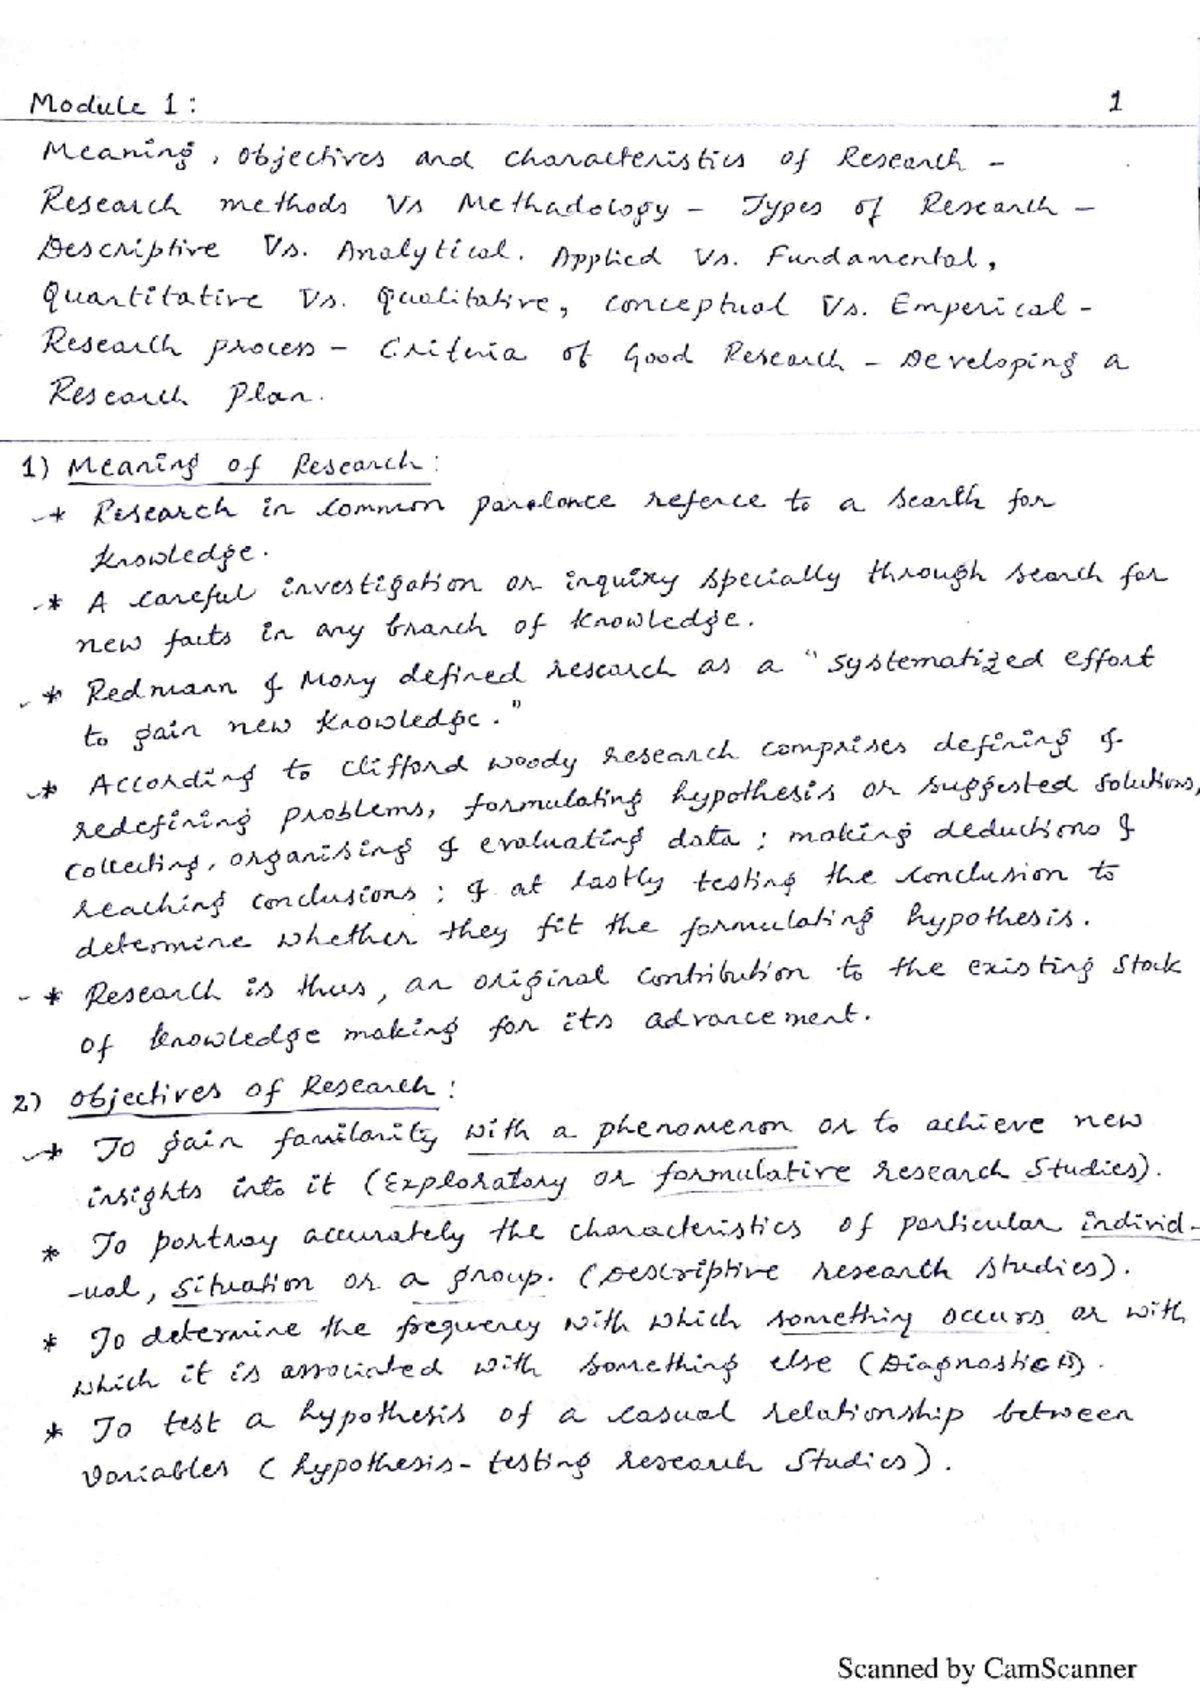 Module 1 : 1
Meaning, objectives and characteristics of Research -
Research methods Vs Methadology - Types of Research -
Descriptive Vs. Analytical. Applied Vs. Fundamental,
Quantitative Vs. Qualitative, conceptual Vs. Emperical -
Research process - Criteria of Good Research - Developing a
Research Plan.
1) Meaning of Research :
* Research in common parolance referce to a search for
knowledge.
* A careful investigation or inquiry specially through search for
new facts in any branch of knowledge.
* Redmann & Mory defined research as a "systematized effort
to gain new knowledge."
* According to Clifford woody research comprises defining &
redefining problems, formulating hypothesis or suggested solutions,
collecting, organising & evaluating data ; making deductions &
reaching conclusions ; & at lastly testing the conclusion to
determine whether they fit the formulating hypothesis.
* Research is thus, an original contribution to the existing stock
of knowledge making for its advancement.
2) Objectives of Research :
* To gain familarity with a phenomenon or to achieve new
insights into it (Exploratory or formulative research Studies).
* To portray accurately the characteristics of particular individ-
-ual, situation or a group. (Descriptive research studies).
* To determine the frequency with which something occurs or with
which it is associated with something else (Diagnostic).
* To test a hypothesis of a casual relationship between
variables (hypothesis-testing research Studies).
Scanned by CamScanner